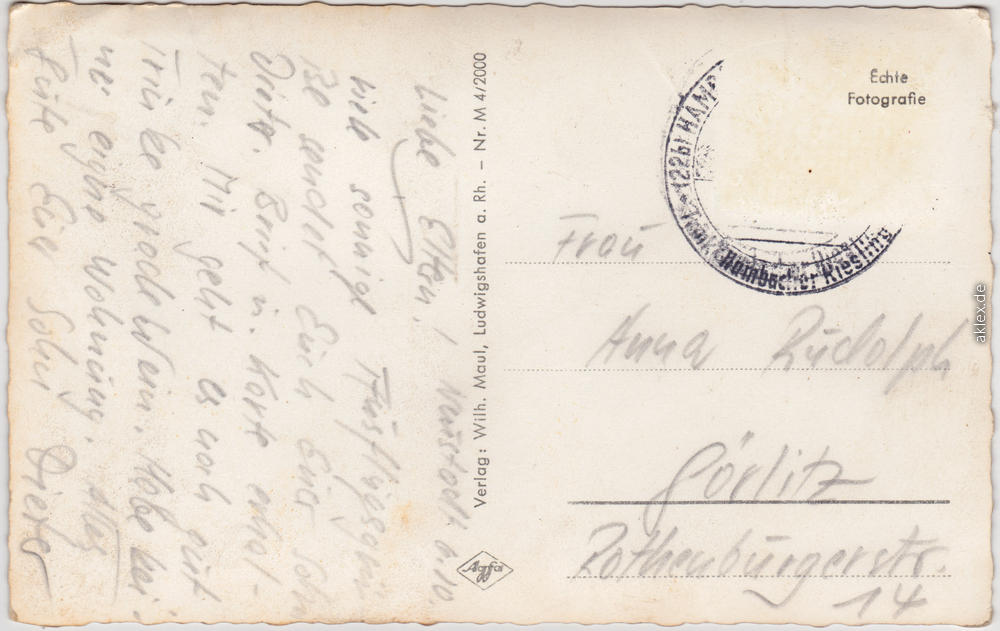 Liebe Eltern! Neustadt 6.10.
viele sonnige Grüße
sendet Euch Euer Sohn
Dieter. Brief u. Karte erhal-
ten. Mir geht es noch gut
Trinke grade Wein. Habe kei-
ne eigne Wohnung. Alles
Gute Eier Sohn Dieter
Verlag: Wilh. Maul, Ludwigshafen a. Rh. – Nr. M 4/2000
Agfa
Echte
Fotografie
(22b) HAMB
Hambacher Riesling
Frau
Anna Rudolph
Görlitz
Rothenburgerstr.
14
aklex.de